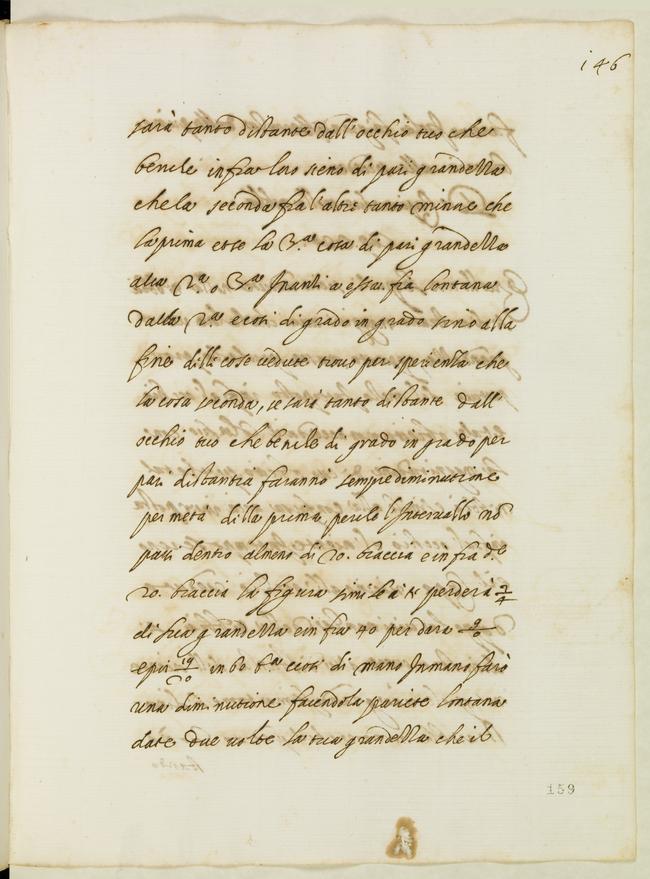 146
sarà tanto distante dall'occhio tuo che
benile infra loro sieno di pari grandella
che la seconda fia l'altre tanto minne che
la prima et se la 3.a cosa di pari grandella
alla 2.a o 3.a Inanti a essa fia lontana
dalla 2.a e cosi di grado in grado sino alla
fine delle cose uedute trouo per sperienza che
la cosa seconda, se sarà tanto distante dall
occhio tuo che benile di grado in grado per
pari distantia faranno sempre diminutione
per metà della prima, perche l'Interuallo nõ
passi dentro almeno di 20. braccia e infra d.e
20. braccia la figura simile à te perderà 2/4
di sua grandella e in fra 40 perdara 9/10
e poi 19/20 in 60 b.a e cosi di mano In mano farò
una diminutione facendo la pariete lontana
da te due uolte la tua grandella che il
159